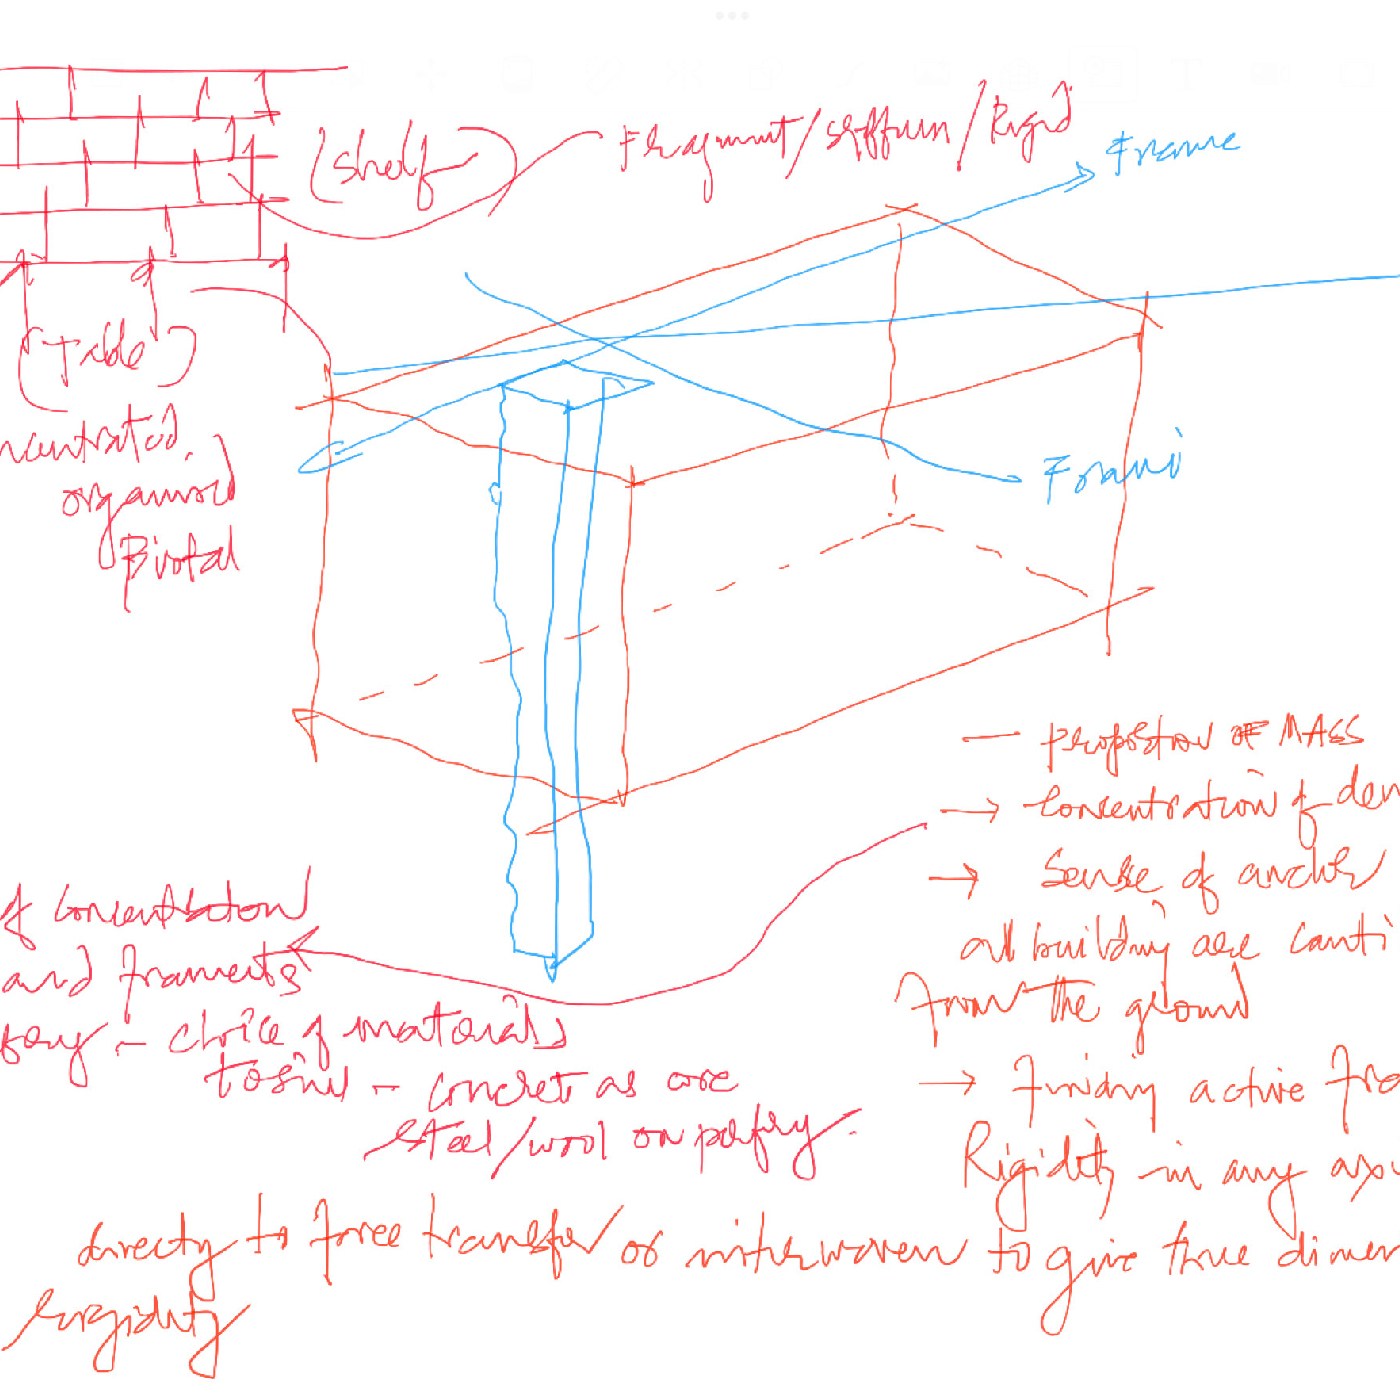 (shelf)
Fragment/stiffum/Rigid
Frame
(Table)
ncentrated,
organised
Pivotal
Frami
— proportion OF MASS
→ Concentration of den
→ Sense of
all building are canti
from the ground
→ Finding active fra
Rigidity in any
of Concentration
and framents
– choice of materials
– concret as core
steel/wool on
directy to force transfer or interwoven to give three dimen
Rigidity